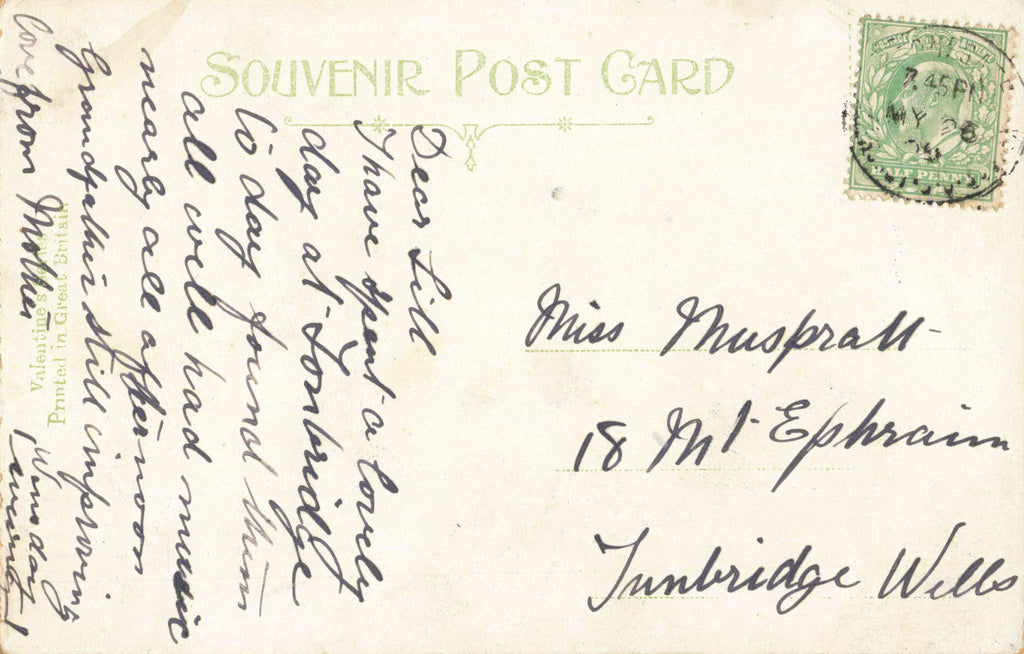 SOUVENIR POST CARD
Dear Lill
I have spent a lovely
day at Tonbridge
to day found them
all well had music
nearly all afternoon
Grandfather still improving
love from Mother
Wensday
Valentine's Series
Printed in Great Britain
Miss Muspratt
18 Mt Ephraim
Tunbridge Wells
7.45PM
MY 26
HALF PENNY